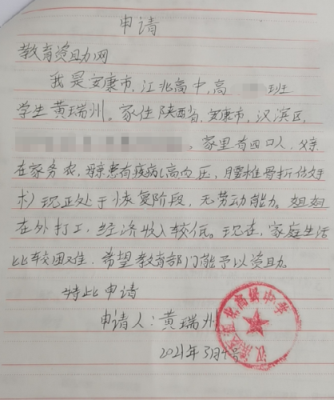 申请
教育资助网
我是安康市,江北高中,高 班
学生黄瑞州。家住陕西省,安康市,汉滨区,
,家里有四口人,父亲
在家务农,母亲患有疾病(高血压,腰椎骨折做过手
术)现正处于恢复阶段,无劳动能力。姐姐
在外打工,经济收入较低。现在,家庭生活
比较困难.希望教育部门能予以资助.
特此申请
申请人:黄瑞州
2021年3月